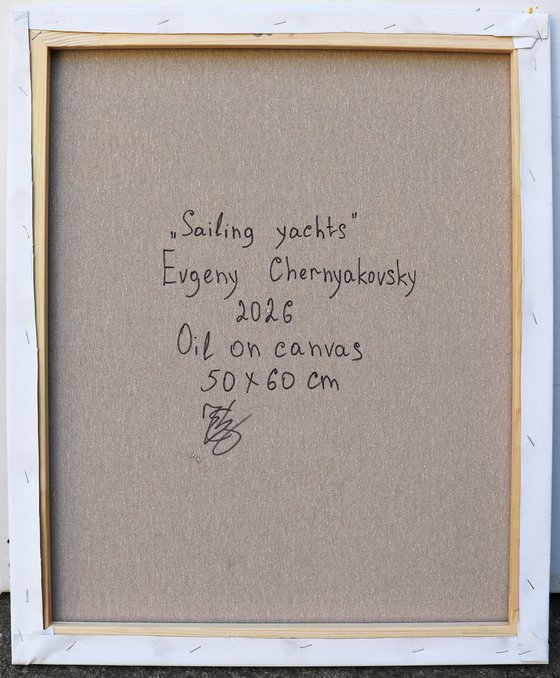 „Sailing yachts"
Evgeny Chernyakovsky
2026
Oil on canvas
50 x 60 cm